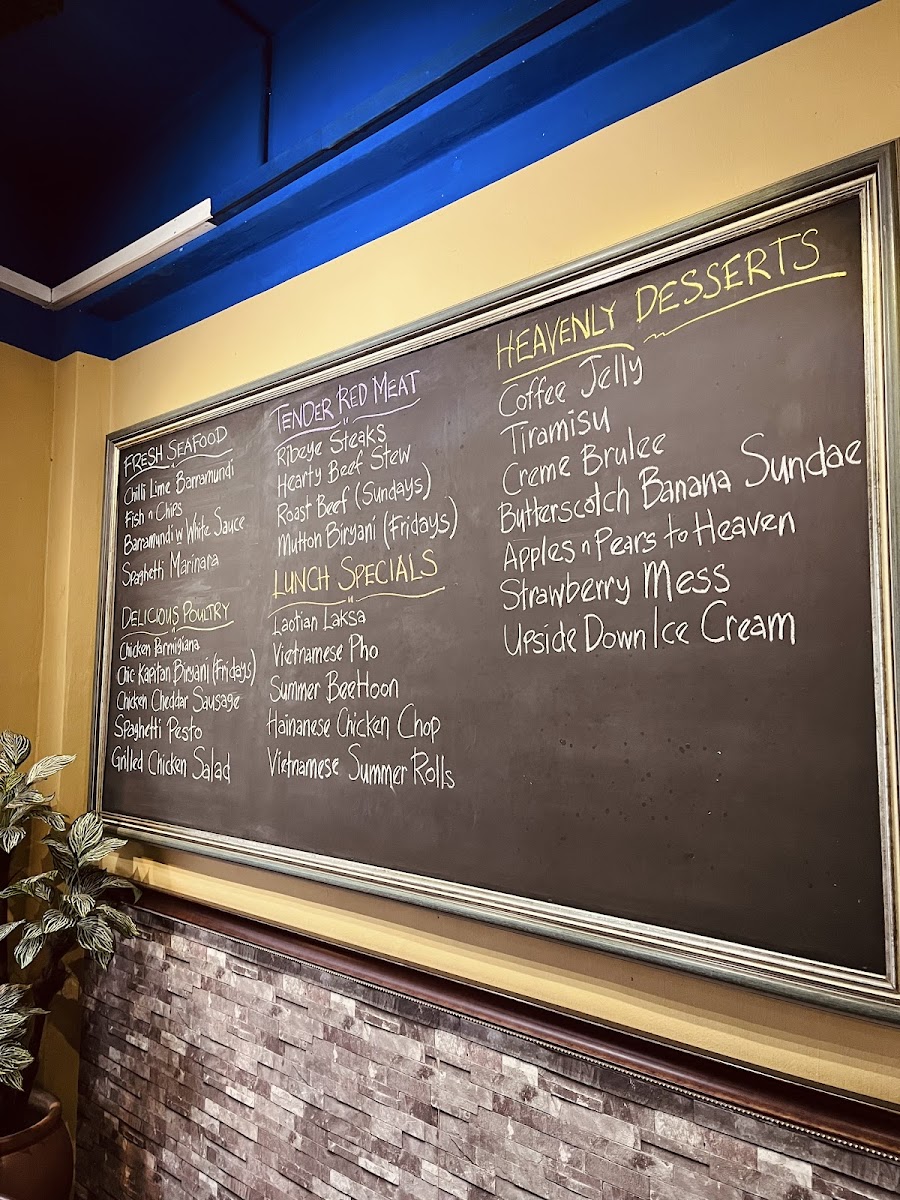 FRESH SEAFOOD
Chilli Lime Barramundi
Fish n Chips
Barramundi w White Sauce
Spaghetti Marinara
DELICIOUS POULTRY
Chicken Parmigiana
Chic Kapitan Biryani (Fridays)
Chicken Cheddar Sausage
Spaghetti Pesto
Grilled Chicken Salad
TENDER RED MEAT
Ribeye Steaks
Hearty Beef Stew
Roast Beef (Sundays)
Mutton Biryani (Fridays)
LUNCH SPECIALS
Laotian Laksa
Vietnamese Pho
Summer BeeHoon
Hainanese Chicken Chop
Vietnamese Summer Rolls
HEAVENLY DESSERTS
Coffee Jelly
Tiramisu
Creme Brulee
Butterscotch Banana Sundae
Apples n Pears to Heaven
Strawberry Mess
Upside Down Ice Cream